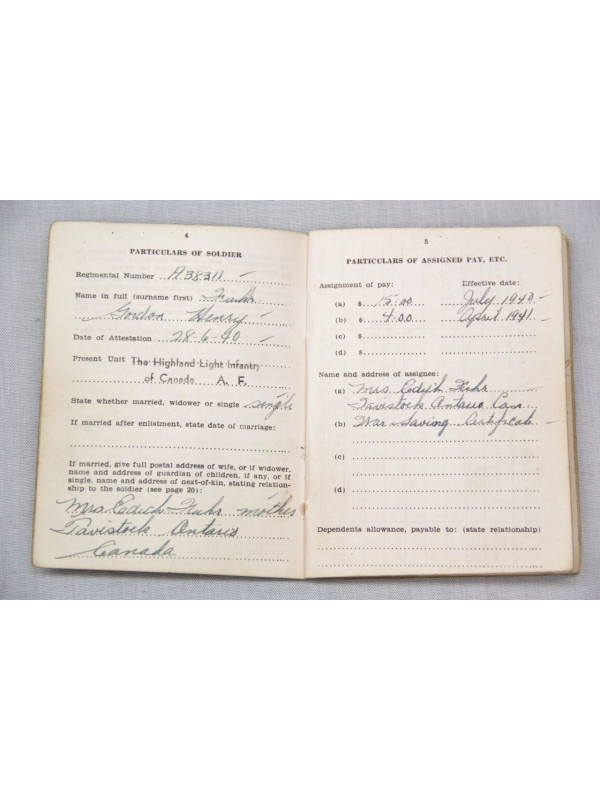 4
PARTICULARS OF SOLDIER
Regimental Number A38311
Name in full (surname first) Fuhr
Gordon Henry
Date of Attestation 28-6-40
Present Unit The Highland Light Infantry
of Canada A. F.
State whether married, widower or single single
If married after enlistment, state date of marriage:
If married, give full postal address of wife, or if widower,
name and address of guardian of children, if any, or if
single, name and address of next-of-kin, stating relation-
ship to the soldier (see page 20):
Mrs. Edith Fuhr mother
Tavistock Ontario
Canada
5
PARTICULARS OF ASSIGNED PAY, ETC.
Assignment of pay: Effective date:
(a) $ 15.00 July 1940
(b) $ 4.00 April 1941
(c) $
(d) $
Name and address of assignee:
(a) Mrs Edith Fuhr
Tavistock Ontario Can
(b) War Saving Certificate
(c)
(d)
Dependents allowance, payable to: (state relationship)